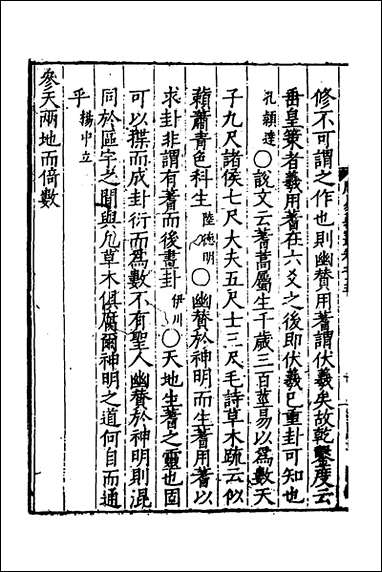 修不可謂之作也則幽賛用蓍謂伏羲矣故乾鑿度云
垂皇策者羲用蓍在六爻之後即伏羲已重卦可知也
孔穎達〇說文云蓍蒿屬生千歲三百莖易以爲數天
子九尺諸侯七尺大夫五尺士三尺毛詩草木疏云似
藾蕭青色科生陸德明〇幽賛於神明而生蓍用蓍以
求卦非謂有蓍而後畫卦伊川〇天地生蓍之靈也固
可以揲而成卦衍而爲數不有聖人幽賛於神明則混
同於區宇之間與凡草木俱腐爾神明之道何自而通
乎楊中立
參天兩地而倚數